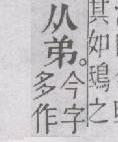 其如之
从弟。
今字
多作